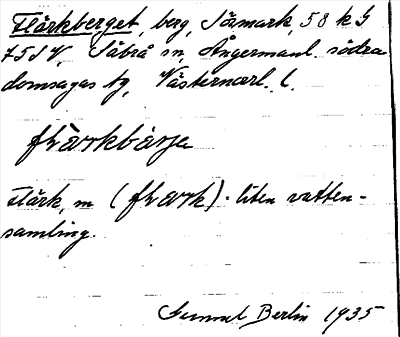 Flärkberget, berg, Särmark, 58 k G
75 S V, Säbrå sn, Ångermanl. södra
domsagas tg, Västernorrl. l.
flærkbärje
Flärk, m (flærk) · liten vatten-
samling.
Samuel Berlin 1935